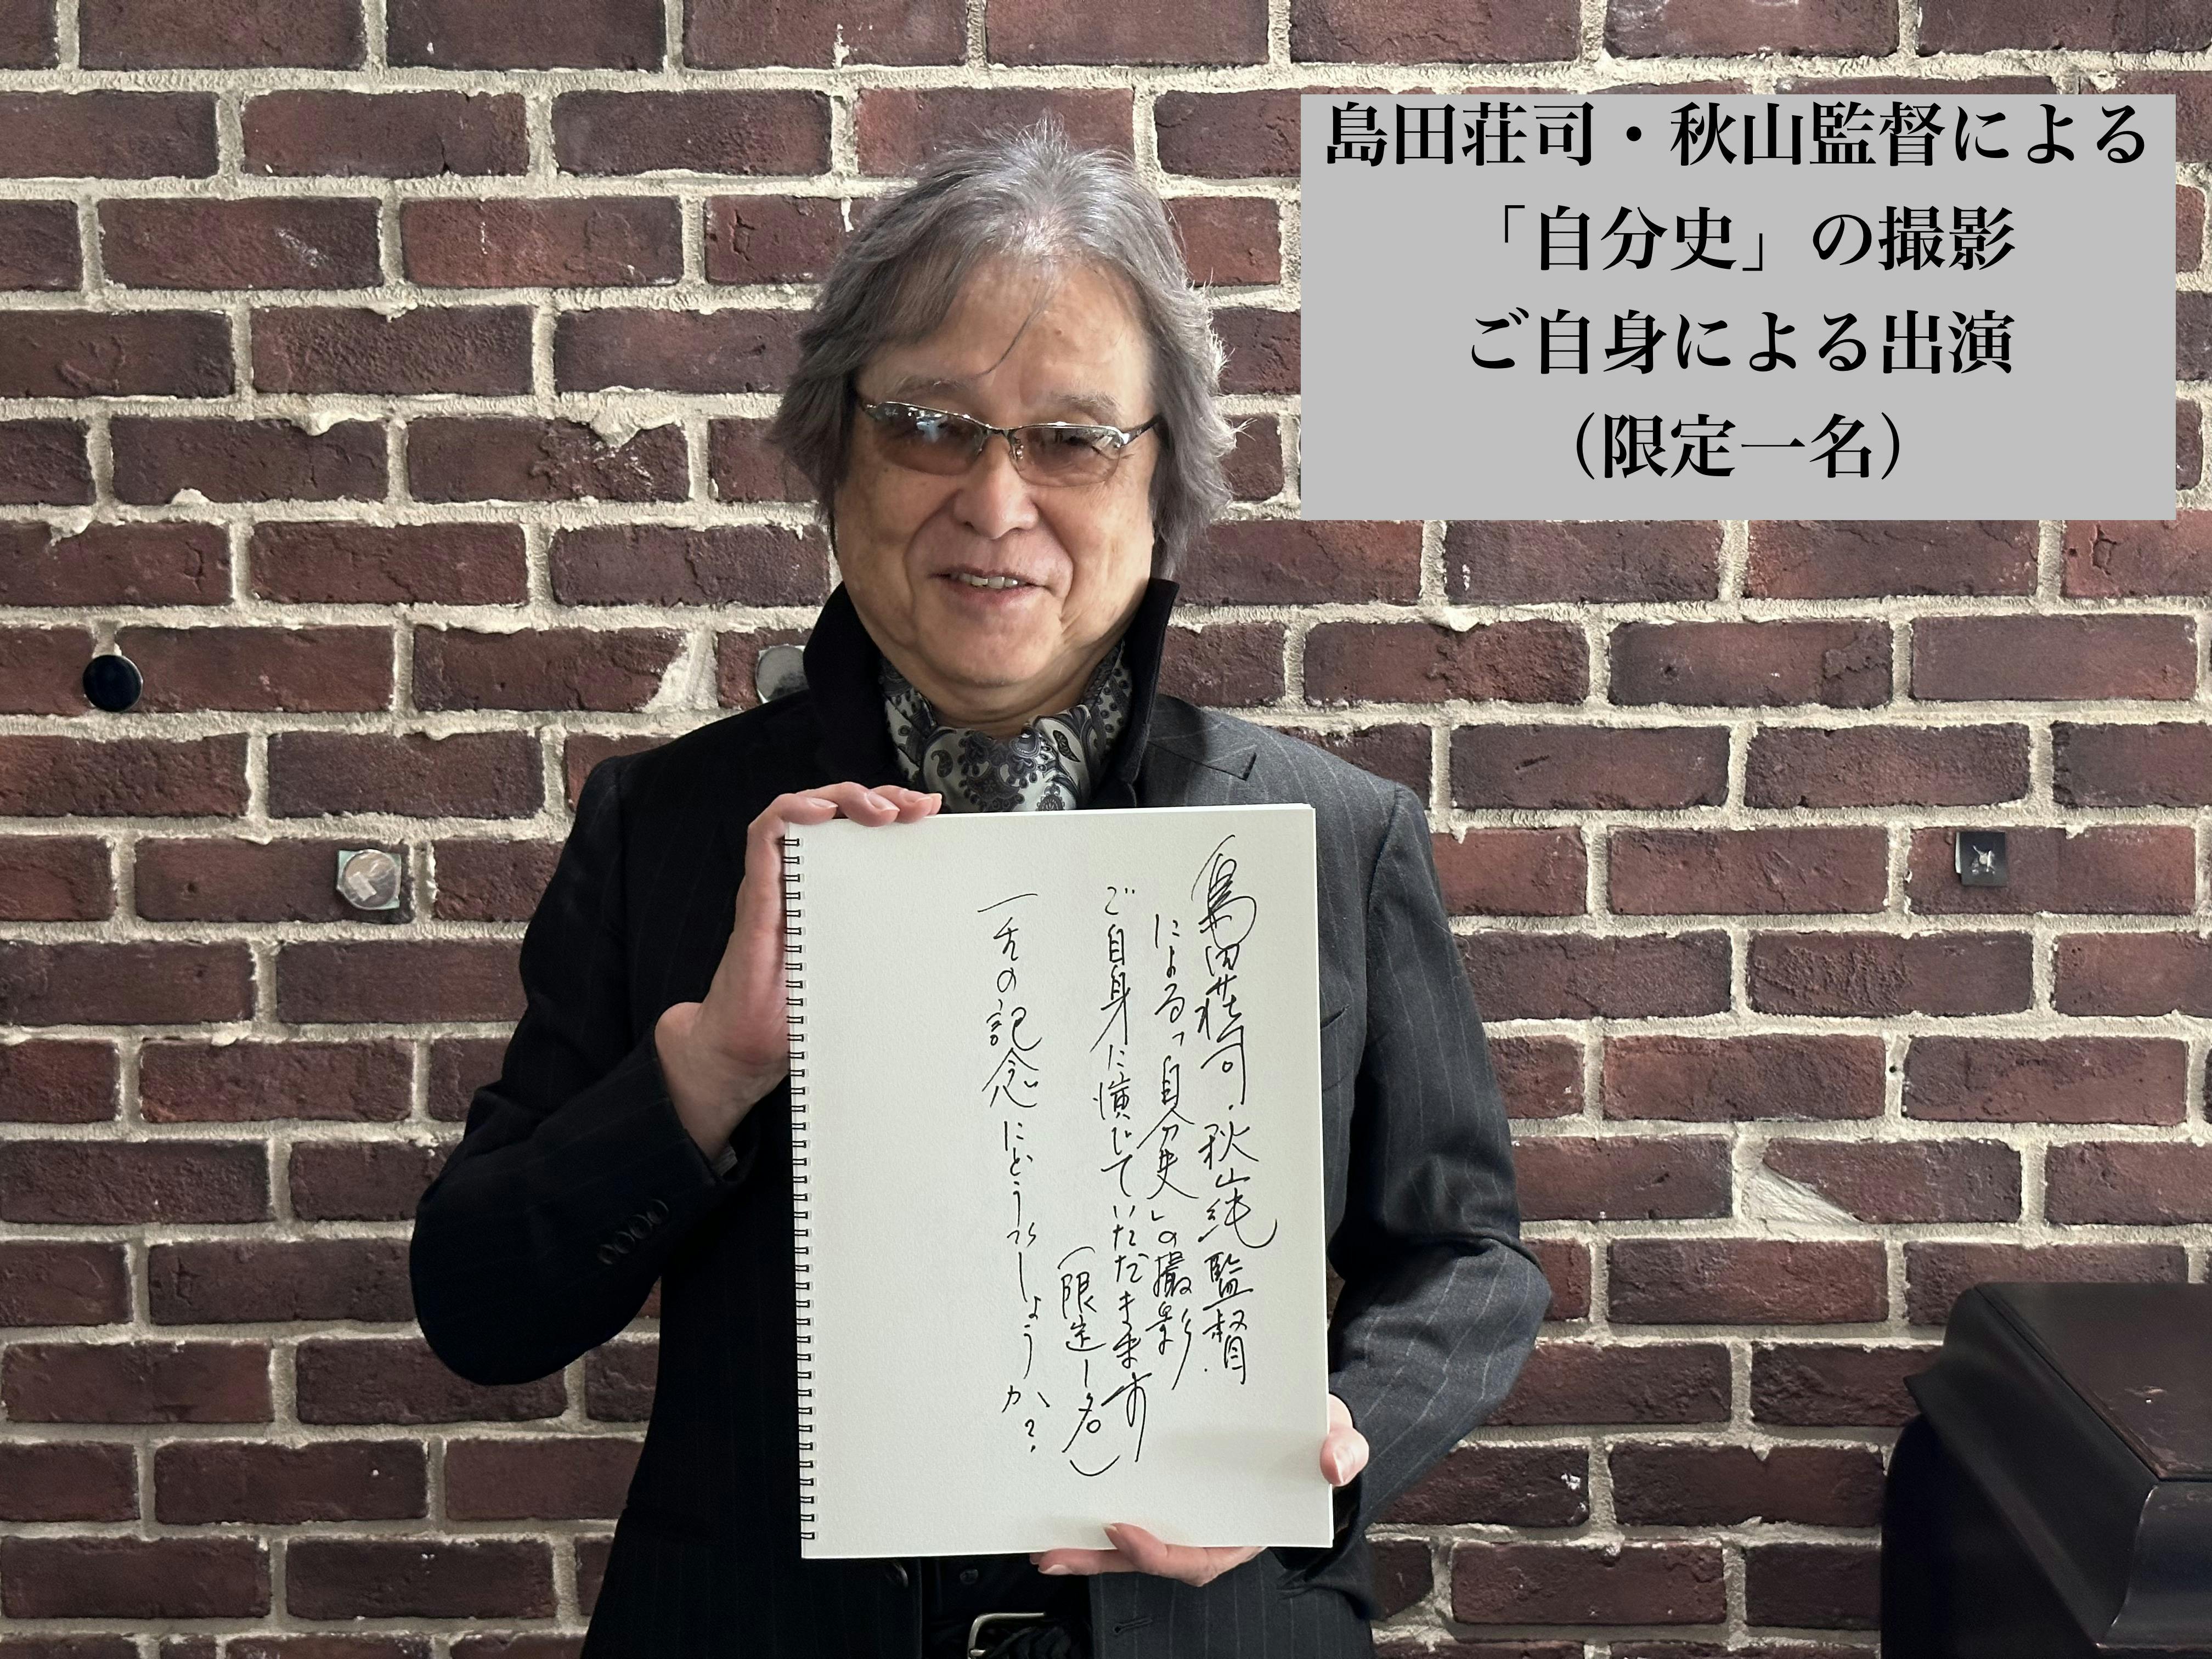 島田荘司・秋山監督による
「自分史」の撮影
ご自身による出演
（限定一名）
島田荘司・秋山純監督
による「自分史」の撮影
ご自身に演じていただきます
（限定一名）
一生の記念にどうでしょうか？